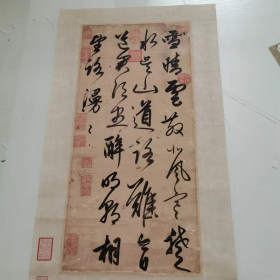 雪晴雲散北風寒楚
水吳山道路難今日
送君須盡醉明朝相
憶路漫々